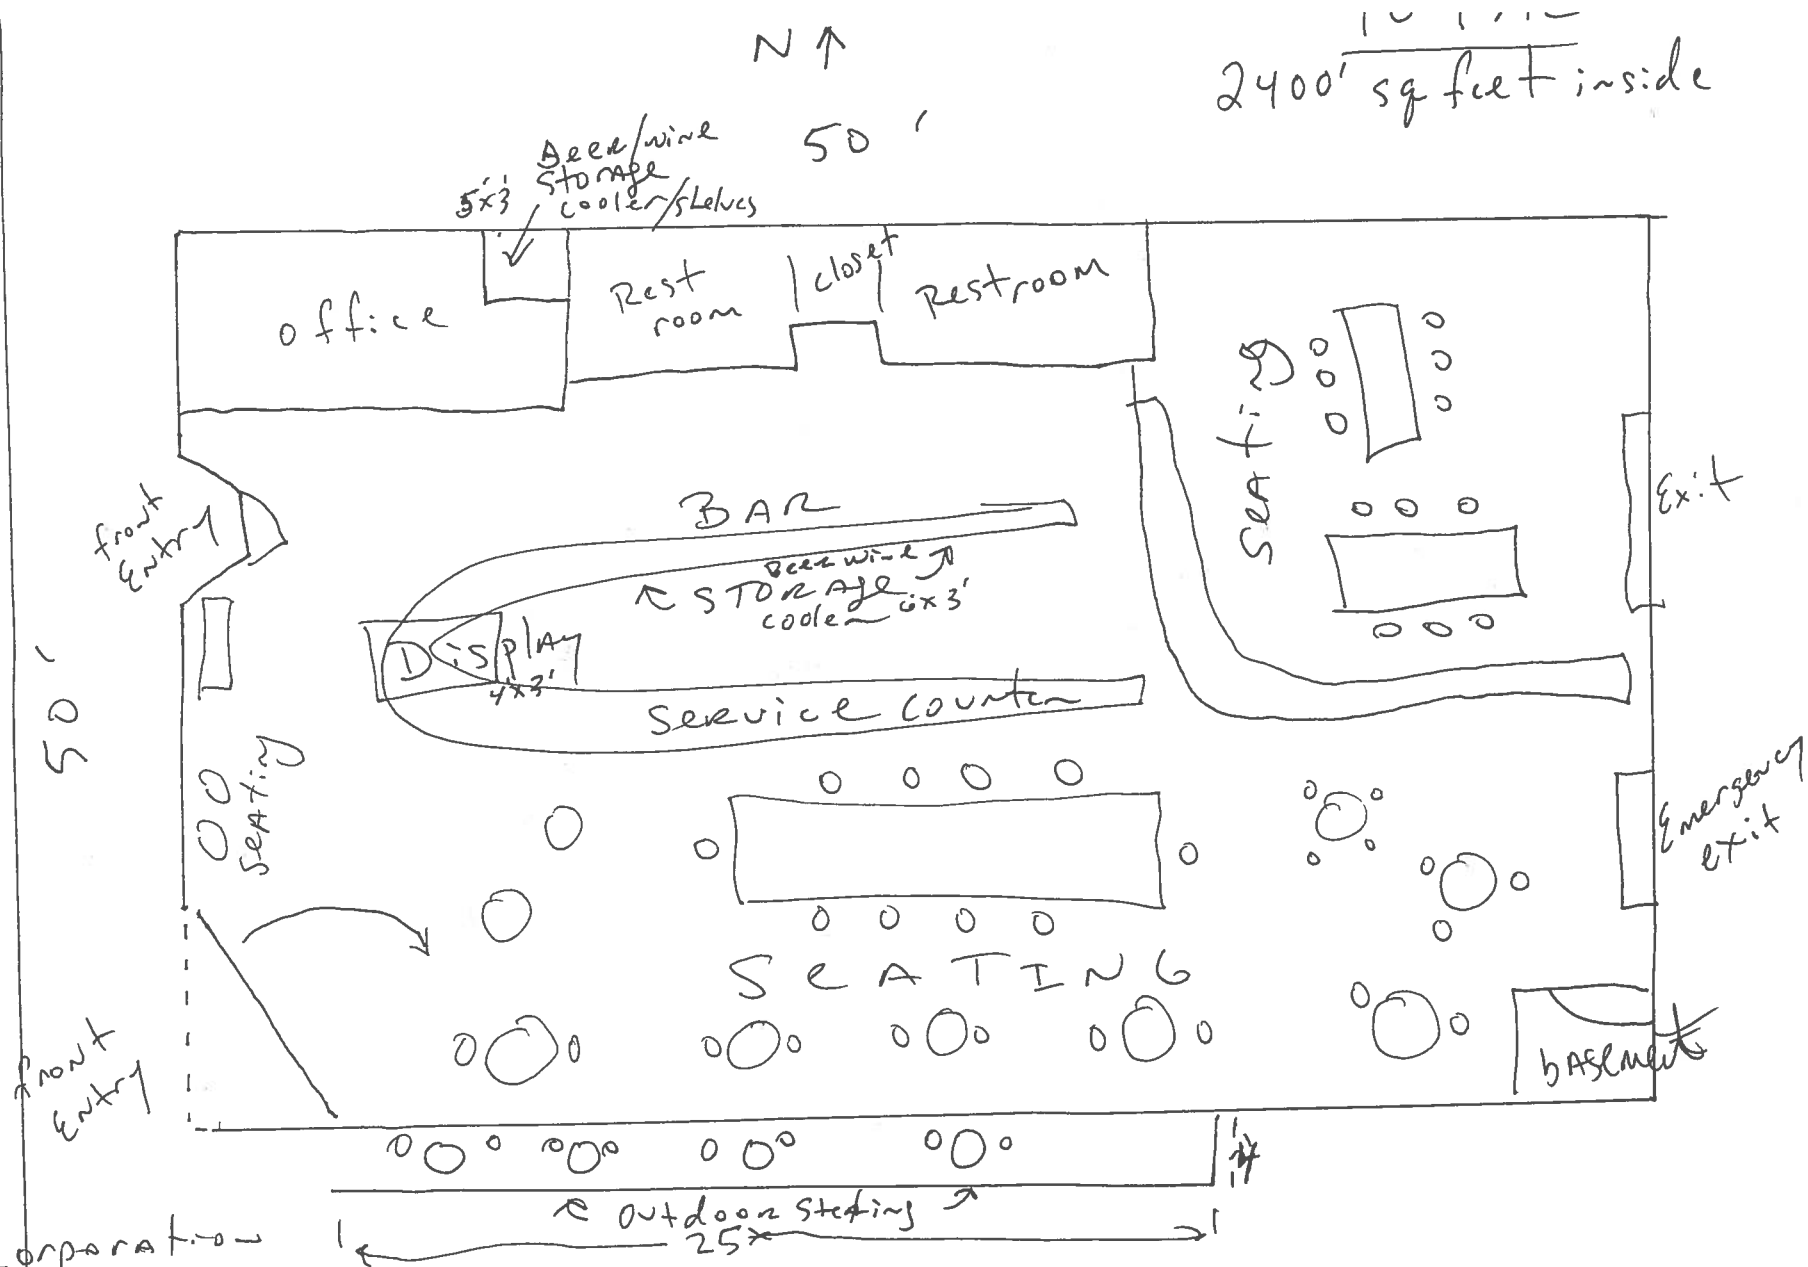 N ↑
2400' sq feet inside
50'
Beer/wine
5'x3' storage
cooler/shelves
office
Rest
room
closet
Restroom
Seating
front
Entry
BAR
Beer wine
STORAGE
cooler 6x3'
Exit
Display
4'x3'
Service Counter
50'
Seating
Emergency
exit
SEATING
front
Entry
basement
Outdoor Seating
25'
orporation